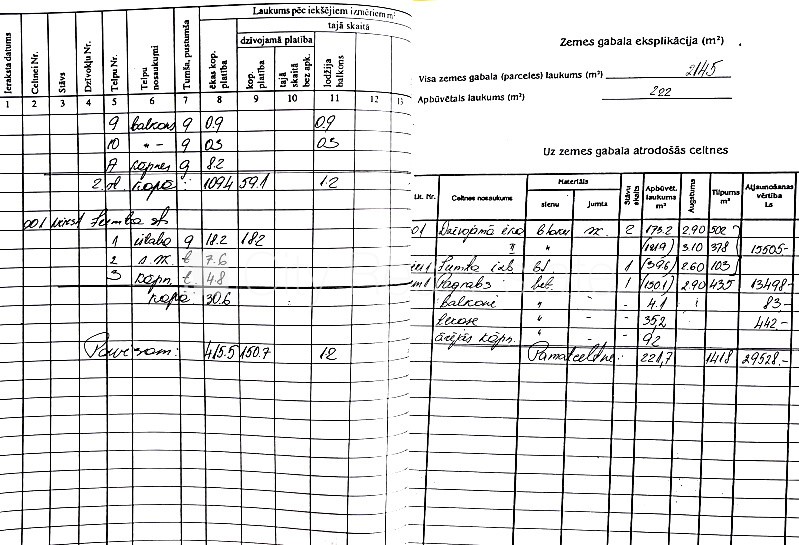 Laukums pēc iekšējiem izmēriem m²
tajā skaitā
dzīvojamā platība
Ieraksta datums
Celtnei Nr.
Stāvs
Dzīvokļu Nr.
Telpu Nr.
Telpu nosaukumi
Tumša, pustumša
ēkas kop. platība
kop. platība
tajā skaitā bez apk.
lodžija balkons
1 2 3 4 5 6 7 8 9 10 11 12 13
9 balkons g 0.9 0.9
10 " - g 0.3 0.3
A kāpnes g 8.2
2. st kopā: 109.4 59.1 1.2
001
1 istaba g 18.2 18.2
2 t 7.6
3 kāpn. t. 4.8
kopā 30.6
Pavisam: 415.5 150.7 1.2
Zemes gabala eksplikācija (m²)
Visa zemes gabala (parceles) laukums (m²) 2145
Apbūvētais laukums (m²) 222
Uz zemes gabala atrodošās celtnes
Lit. Nr.
Celtnes nosaukums
Materiāls
sienu
jumta
Stāvu skaits
Apbūvēt. laukums m²
Augstums
Tilpums m³
Atjaunošanas vērtība Ls
01 Dzīvojamā ēka 2 173.2 2.90 502
" " 3.10 378 15505.-
1 (39.6) 2.60 103
Pagrabs bet. 1 (150.1) 2.90 435 13498.-
balkoni " - - 4.1 83.-
terase " - - 35.2 442.-
ārējās kāpn. " - - 9.2
Pamatceltne: 221,7 1418 29528.-